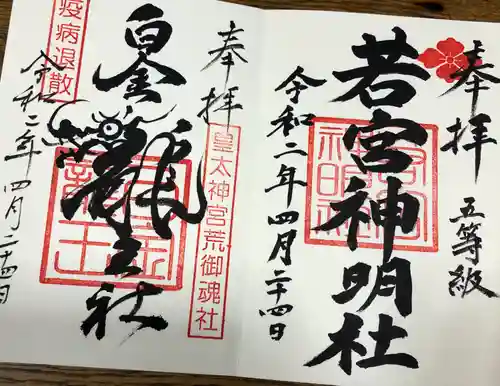 奉拝
五等級
若宮神明社
令和二年四月二十四日
奉拝
皇太神宮荒御魂社
白金龍王社
疫病退散
令和二年四月二十四日